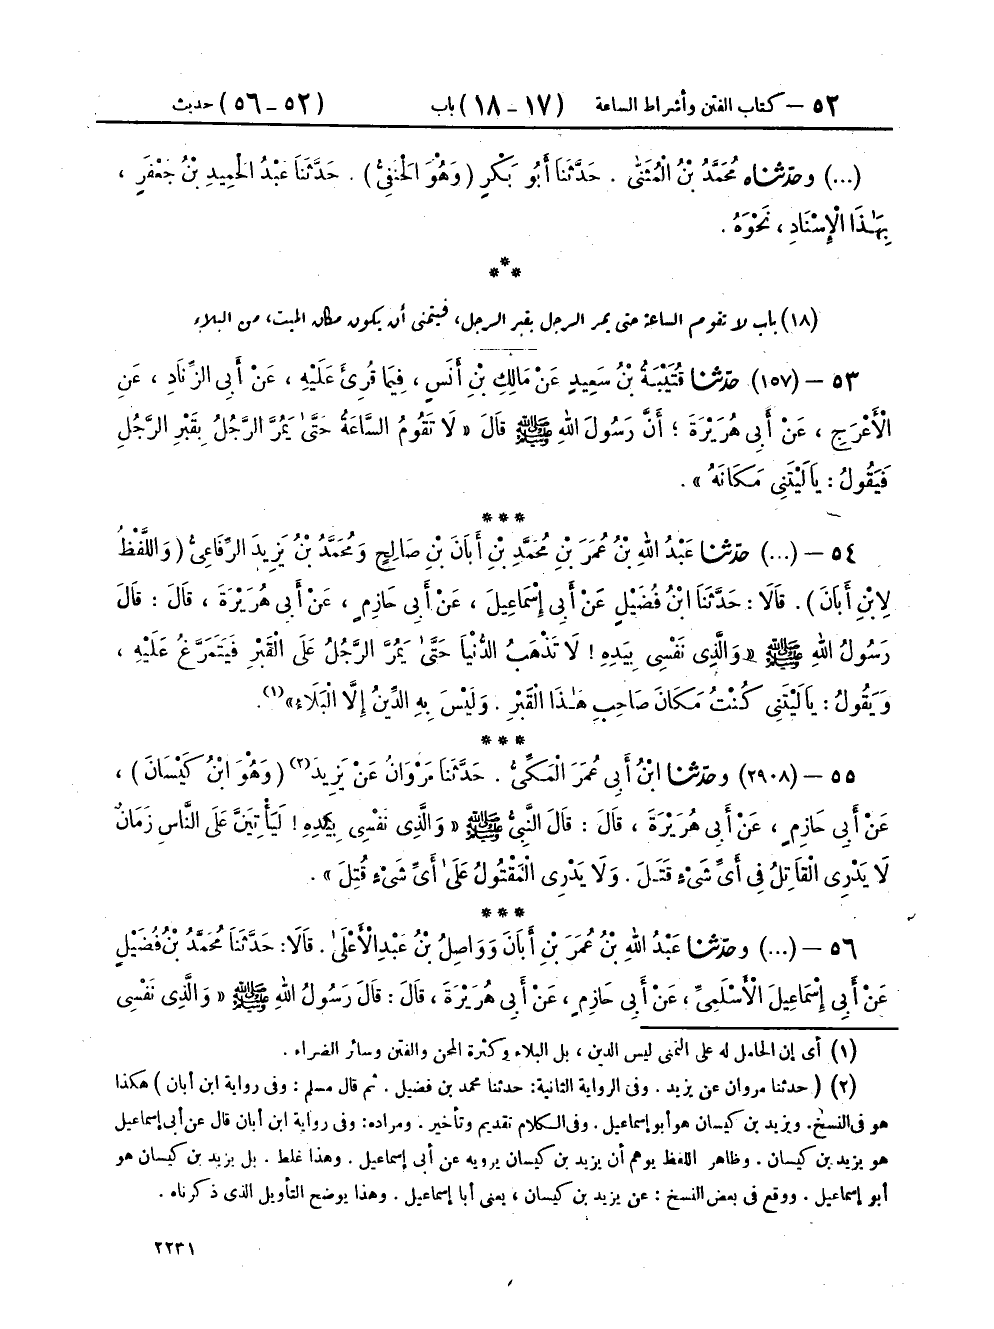 ٥٢ – كتاب الفتن وأشراط الساعة (١٧ – ١٨) باب (٥٢ – ٥٦) حديث
(...) وحَدَّثَنَاه مُحَمَّدُ بْنُ الْمُثَنَّىٰ . حَدَّثَنَا أَبُو بَكْرٍ (وَهُوَ الْحَنَفِيُّ) . حَدَّثَنَا عَبْدُ الْحَمِيدِ بْنُ جَعْفَرٍ ،
بِهَـٰذَا الْإِسْنَادِ ، نَحْوَهُ .
***
(١٨) باب لا تقوم الساعة حتى يمر الرجل بقبر الرجل، فيتمنى أن يكون مكان الميت، من البلاء
٥٣ – (١٥٧) حَدَّثَنَا قُتَيْبَةُ بْنُ سَعِيدٍ عَنْ مَالِكِ بْنِ أَنَسٍ ، فِيمَا قُرِئَ عَلَيْهِ ، عَنْ أَبِي الزِّنَادِ ، عَنِ
الْأَعْرَجِ ، عَنْ أَبِي هُرَيْرَةَ ؛ أَنَّ رَسُولَ اللهِ ﷺ قَالَ « لَا تَقُومُ السَّاعَةُ حَتَّىٰ يَمُرَّ الرَّجُلُ بِقَبْرِ الرَّجُلِ
فَيَقُولُ : يَالَيْتَنِي مَكَانَهُ » .
***
٥٤ – (...) حَدَّثَنَا عَبْدُ اللهِ بْنُ عُمَرَ بْنِ مُحَمَّدِ بْنِ أَبَانَ بْنِ صَالِحٍ وَمُحَمَّدُ بْنُ يَزِيدَ الرِّفَاعِيُّ (وَاللَّفْظُ
لِابْنِ أَبَانَ) . قَالَا : حَدَّثَنَا ابْنُ فُضَيْلٍ عَنْ أَبِي إِسْمَاعِيلَ ، عَنْ أَبِي حَازِمٍ ، عَنْ أَبِي هُرَيْرَةَ ، قَالَ : قَالَ
رَسُولُ اللهِ ﷺ « وَالَّذِي نَفْسِي بِيَدِهِ ! لَا تَذْهَبُ الدُّنْيَا حَتَّىٰ يَمُرَّ الرَّجُلُ عَلَى الْقَبْرِ فَيَتَمَرَّغُ عَلَيْهِ ،
وَيَقُولُ : يَالَيْتَنِي كُنْتُ مَكَانَ صَاحِبِ هَـٰذَا الْقَبْرِ . وَلَيْسَ بِهِ الدِّينُ إِلَّا الْبَلَاءُ»(١).
***
٥٥ – (٢٩٠٨) وحَدَّثَنَا ابْنُ أَبِي عُمَرَ الْمَكِّيُّ . حَدَّثَنَا مَرْوَانُ عَنْ يَزِيدَ(٢) (وَهُوَ ابْنُ كَيْسَانَ) ،
عَنْ أَبِي حَازِمٍ ، عَنْ أَبِي هُرَيْرَةَ ، قَالَ : قَالَ النَّبِيُّ ﷺ « وَالَّذِي نَفْسِي بِيَدِهِ ! لَيَأْتِيَنَّ عَلَى النَّاسِ زَمَانٌ
لَا يَدْرِي الْقَاتِلُ فِي أَيِّ شَيْءٍ قَتَلَ . وَلَا يَدْرِي الْمَقْتُولُ عَلَىٰ أَيِّ شَيْءٍ قُتِلَ » .
***
٥٦ – (...) وحَدَّثَنَا عَبْدُ اللهِ بْنُ عُمَرَ بْنِ أَبَانَ وَوَاصِلُ بْنُ عَبْدِ الْأَعْلَىٰ . قَالَا : حَدَّثَنَا مُحَمَّدُ بْنُ فُضَيْلٍ
عَنْ أَبِي إِسْمَاعِيلَ الْأَسْلَمِيِّ ، عَنْ أَبِي حَازِمٍ ، عَنْ أَبِي هُرَيْرَةَ ، قَالَ : قَالَ رَسُولُ اللهِ ﷺ « وَالَّذِي نَفْسِي
(١) أى إن الحامل له على التمنى ليس الدين ، بل البلاء وكثرة المحن والفتن وسائر الضراء .
(٢) ( حدثنا مروان عن يزيد . وفى الرواية الثانية: حدثنا محمد بن فضيل . ثم قال مسلم : وفى رواية ابن أبان ) هكذا
هو فى النسخ. ويزيد بن كيسان هو أبو إسماعيل . وفى الكلام تقديم وتأخير . ومراده: وفى رواية ابن أبان قال عن أبى إسماعيل
هو يزيد بن كيسان . وظاهر اللفظ يوهم أن يزيد بن كيسان يرويه عن أبى إسماعيل . وهذا غلط . بل يزيد بن كيسان هو
أبو إسماعيل . ووقع فى بعض النسخ : عن يزيد بن كيسان ، يعنى أبا إسماعيل . وهذا يوضح التأويل الذى ذكرناه .
٢٢٣١